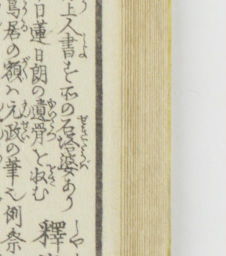 上人書す所の石塔婆あり
日蓮日朗の遺骨を収む
鳥居の額ハ元政の筆也例祭
釋